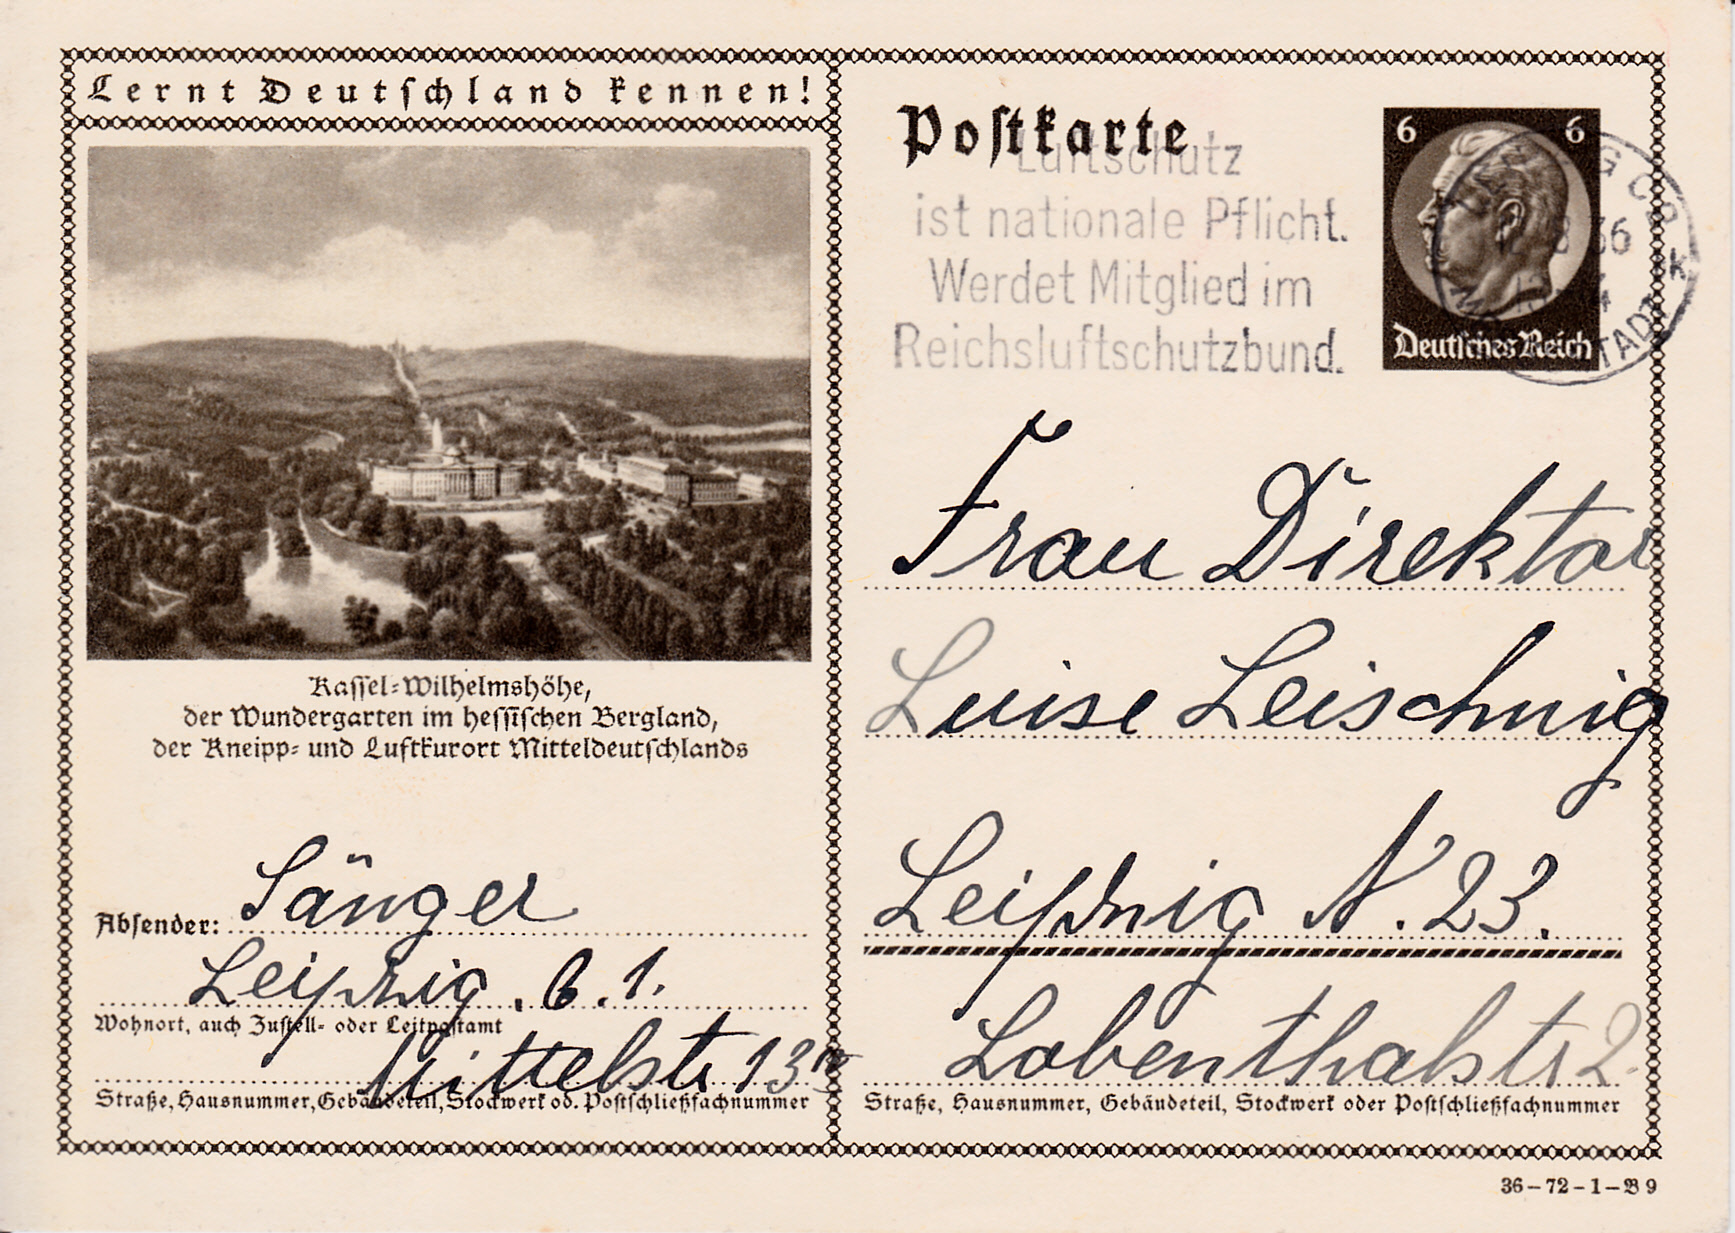 Lernt Deutschland kennen!
Kassel-Wilhelmshöhe,
der Wundergarten im hessischen Bergland,
der Kneipp- und Luftkurort Mitteldeutschlands
Absender: Sänger
Leipzig. C. 1.
Wohnort, auch Zustell- oder Leitpostamt
Mittelstr 13
Straße, Hausnummer, Gebäudeteil, Stockwerk od. Postschließfachnummer
Postkarte
Luftschutz
ist nationale Pflicht.
Werdet Mitglied im
Reichsluftschutzbund.
6 6
Deutsches Reich
36
Frau Direktor
Luise Leischnig
Leipzig N. 23.
Lobenthalstr 2.
Straße, Hausnummer, Gebäudeteil, Stockwerk oder Postschließfachnummer
36-72-1-B 9